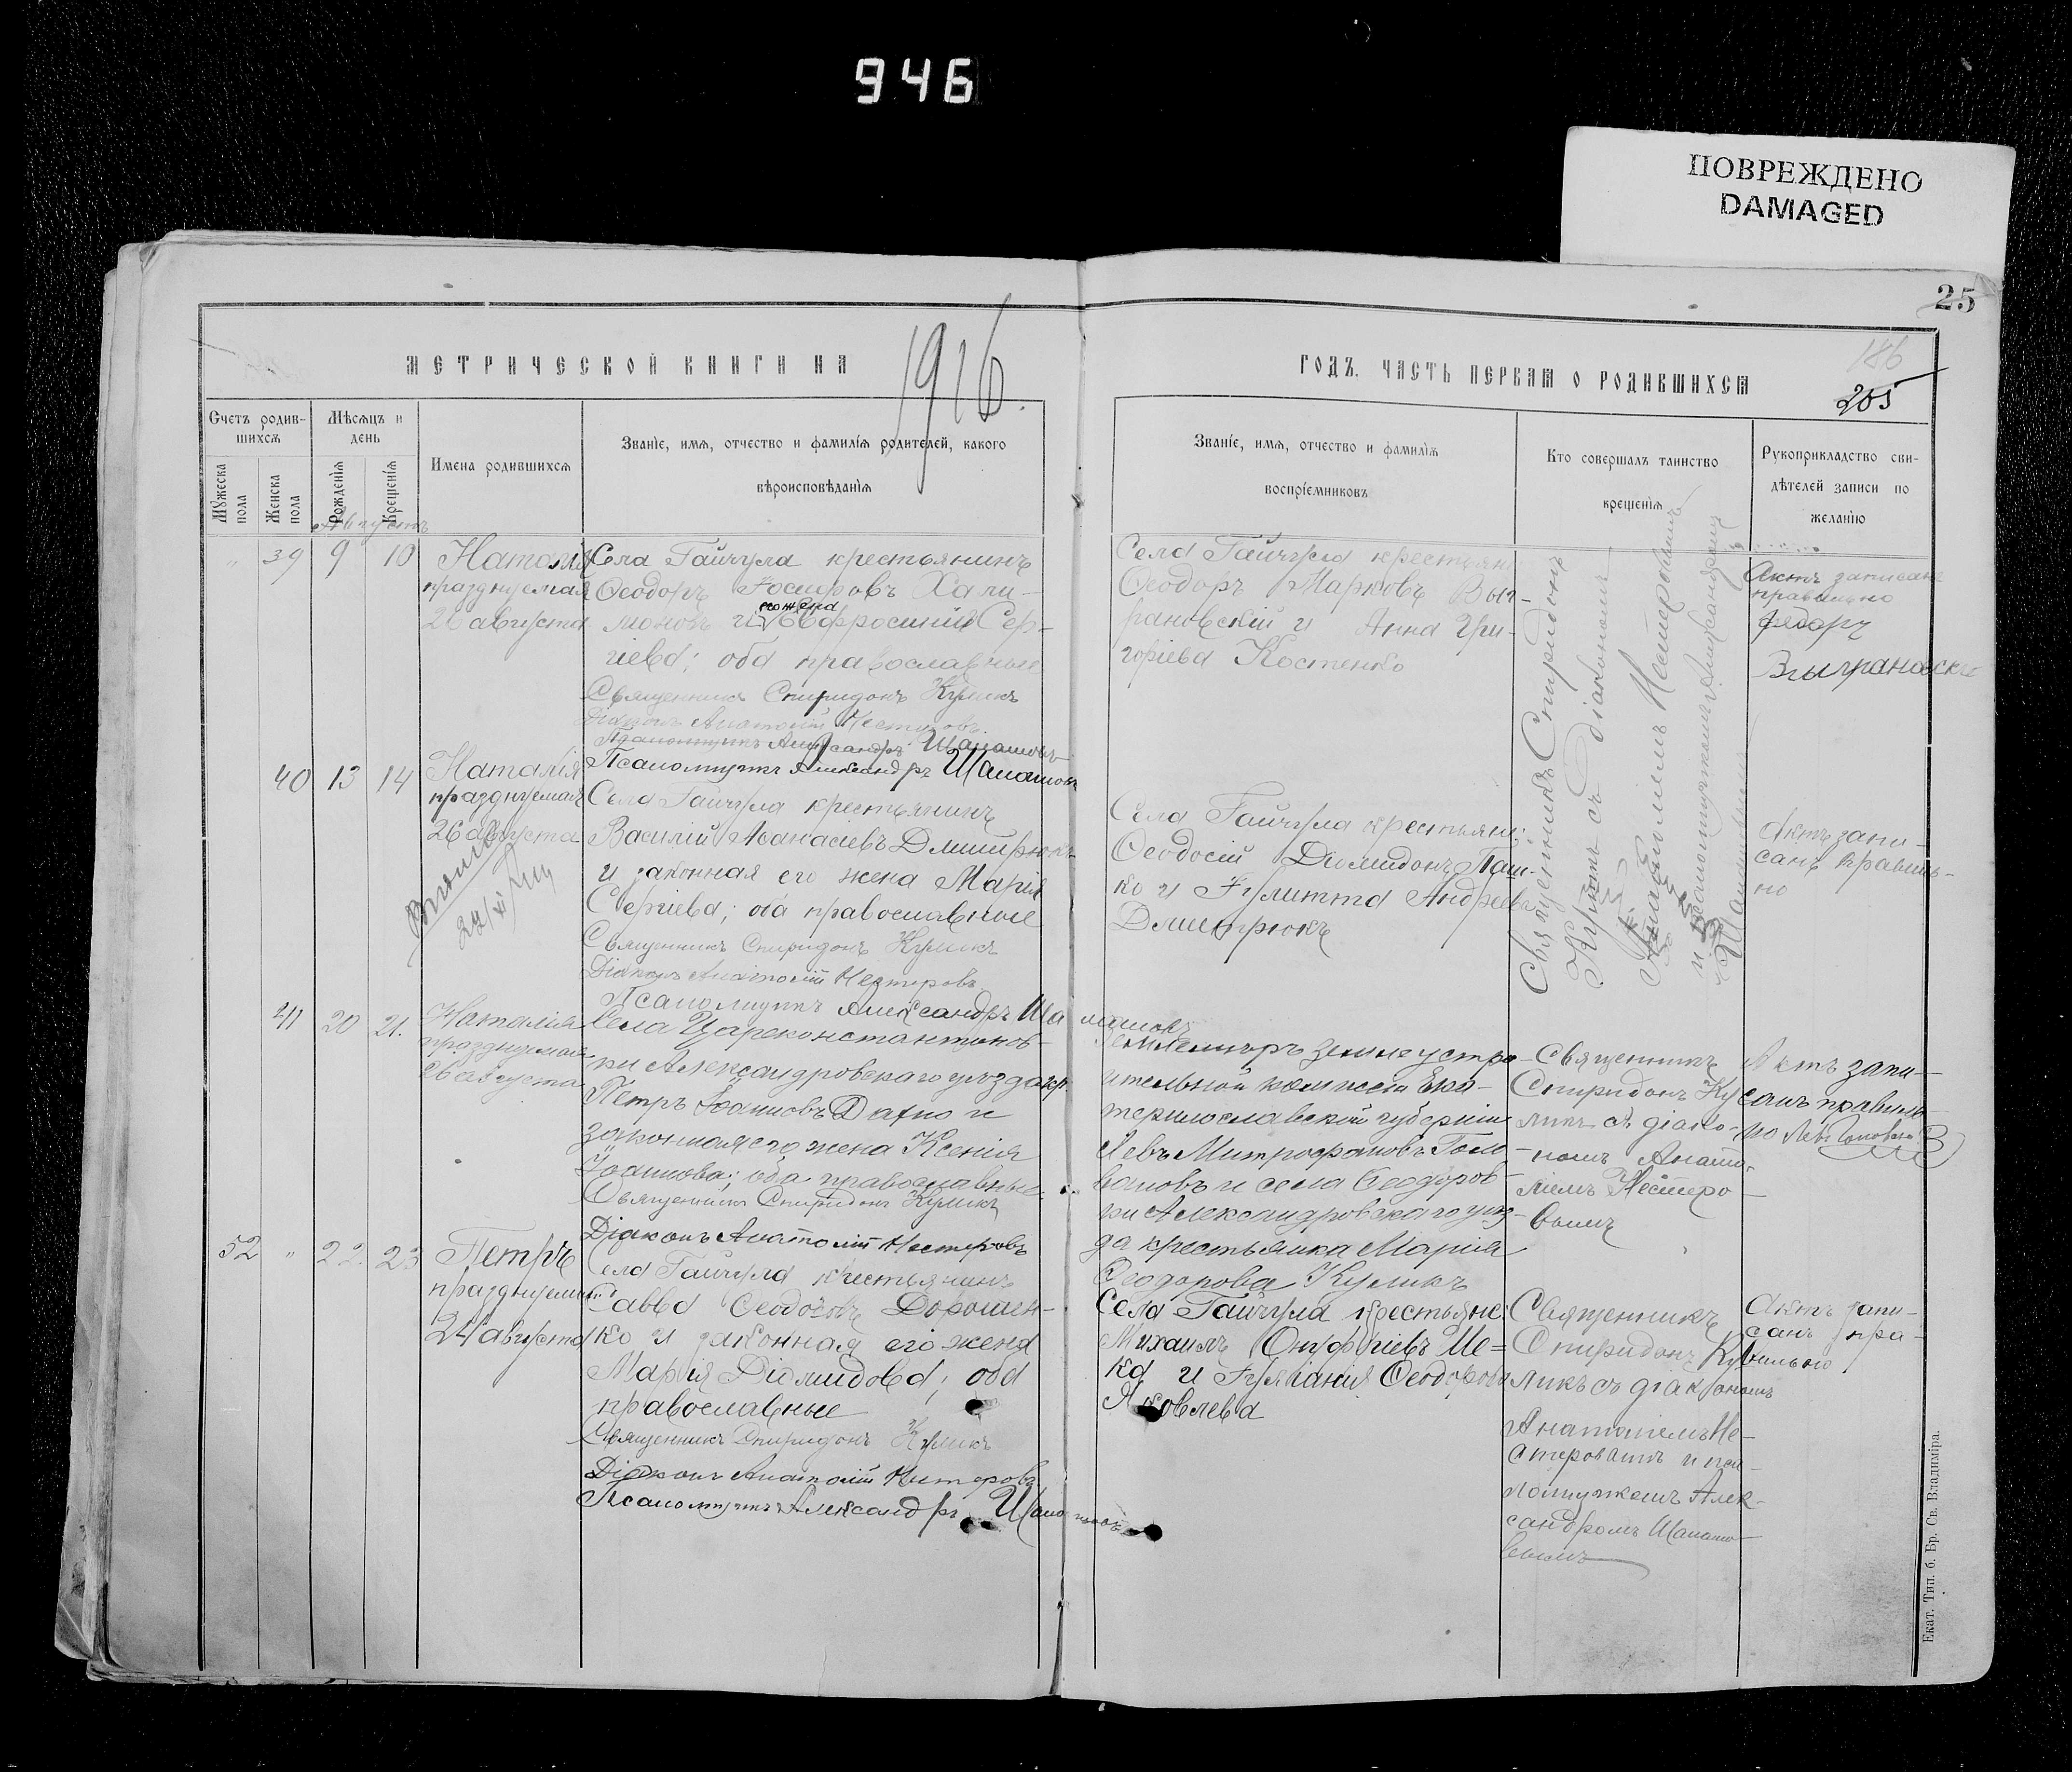 946
ПОВРЕЖДЕНО
DAMAGED
25
МЕТРИЧЕСКОЙ КНИГИ НА 1916.
ГОДЪ. ЧАСТЬ ПЕРВАЯ О РОДИВШИХСЯ
186
205
Счетъ родив-
шихся
Мѣсяцъ и
день
Мужеска
пола
Женска
пола
Рожденія
Крещенія
Имена родившихся
Званіе, имя, отчество и фамилія родителей, какого
вѣроисповѣданія
Званіе, имя, отчество и фамилія
воспріемниковъ
Кто совершалъ таинство
крещенія
Рукоприкладство сви-
дѣтелей записи по
желанію
Августъ
" 39 9 10
Наталія
празднуемая
26 августа
Села Гайчула крестьянинъ
Ѳеодоръ Хали-
моновъ и жена Евфросинія Сер-
гіева; оба православные
Священникъ Спиридонъ Куликъ
Діаконъ Анатолій Нестеровъ
Псаломщикъ Александръ Шалашовъ
Села Гайчула крестьяне
Ѳеодоръ Марковъ Выг-
рановскій и Анна Гри-
горіева Костенко
Священникъ Спиридонъ
Куликъ съ діакономъ
Анатоліемъ Нестеровымъ
и псаломщикомъ Александромъ
Шалашовымъ
Актъ записанъ
правильно
Федоръ
40 13 14
Наталія
празднуемая
26 августа
Псаломщикъ Александръ Шалашовъ
Села Гайчула крестьянинъ
Василій Аѳанасіевъ Дмитрюкъ
и законная его жена Марія
Сергіева; оба православные
Священникъ Спиридонъ Куликъ
Діаконъ Анатолій Нестеровъ
Псаломщикъ Александръ Шалашовъ
Села Гайчула крестьяне:
Ѳеодосій Діомидовъ Паш-
ко и Іулитта Андреева
Дмитрюкъ
Актъ запи-
санъ правиль-
но
41 20 21.
Наталія
празднуемая
26 августа
Села Цареконстантинов-
ки Александровскаго уѣзда кр.
Петръ Іоанновъ Дахно и
законная его жена Ксенія
Іоаннова; оба православные.
Священникъ Спиридонъ Куликъ
Діаконъ Анатолій Нестеровъ
Землемѣръ землеустро-
ительной комисіи Ека-
теринославской губерніи
Левъ Митрофановъ Голо-
вановъ и села Ѳеодоров-
ки Александровскаго уѣз-
да крестьянка Марія
Ѳеодорова Куликъ
Священникъ
Спиридонъ Ку-
ликъ съ діако-
номъ Анато-
ліемъ Нестеро-
вымъ
Актъ запи-
санъ правиль-
но Левъ
52 " 22. 23
Петръ
празднуемый
24 августа
Села Гайчула крестьянинъ
Савва Ѳеодосіевъ Дорошен-
ко и законная его жена
Марія Діомидова; оба
православные
Священникъ Спиридонъ Куликъ
Діаконъ Анатолій Нестеровъ
Псаломщикъ Александръ Шалашовъ
Села Гайчула крестьяне:
Михаилъ Онуфріевъ Ме=
ка и Іуліанія Ѳеодорова
Яковлева
Священникъ
Спиридонъ Ку-
ликъ съ діакономъ
Анатоліемъ Не-
стеровымъ и пса-
ломщикомъ Алек-
сандромъ Шалашо-
вымъ
Актъ запи-
санъ пра-
вильно
Екат. Тип. б. Бр. Св. Владиміра.